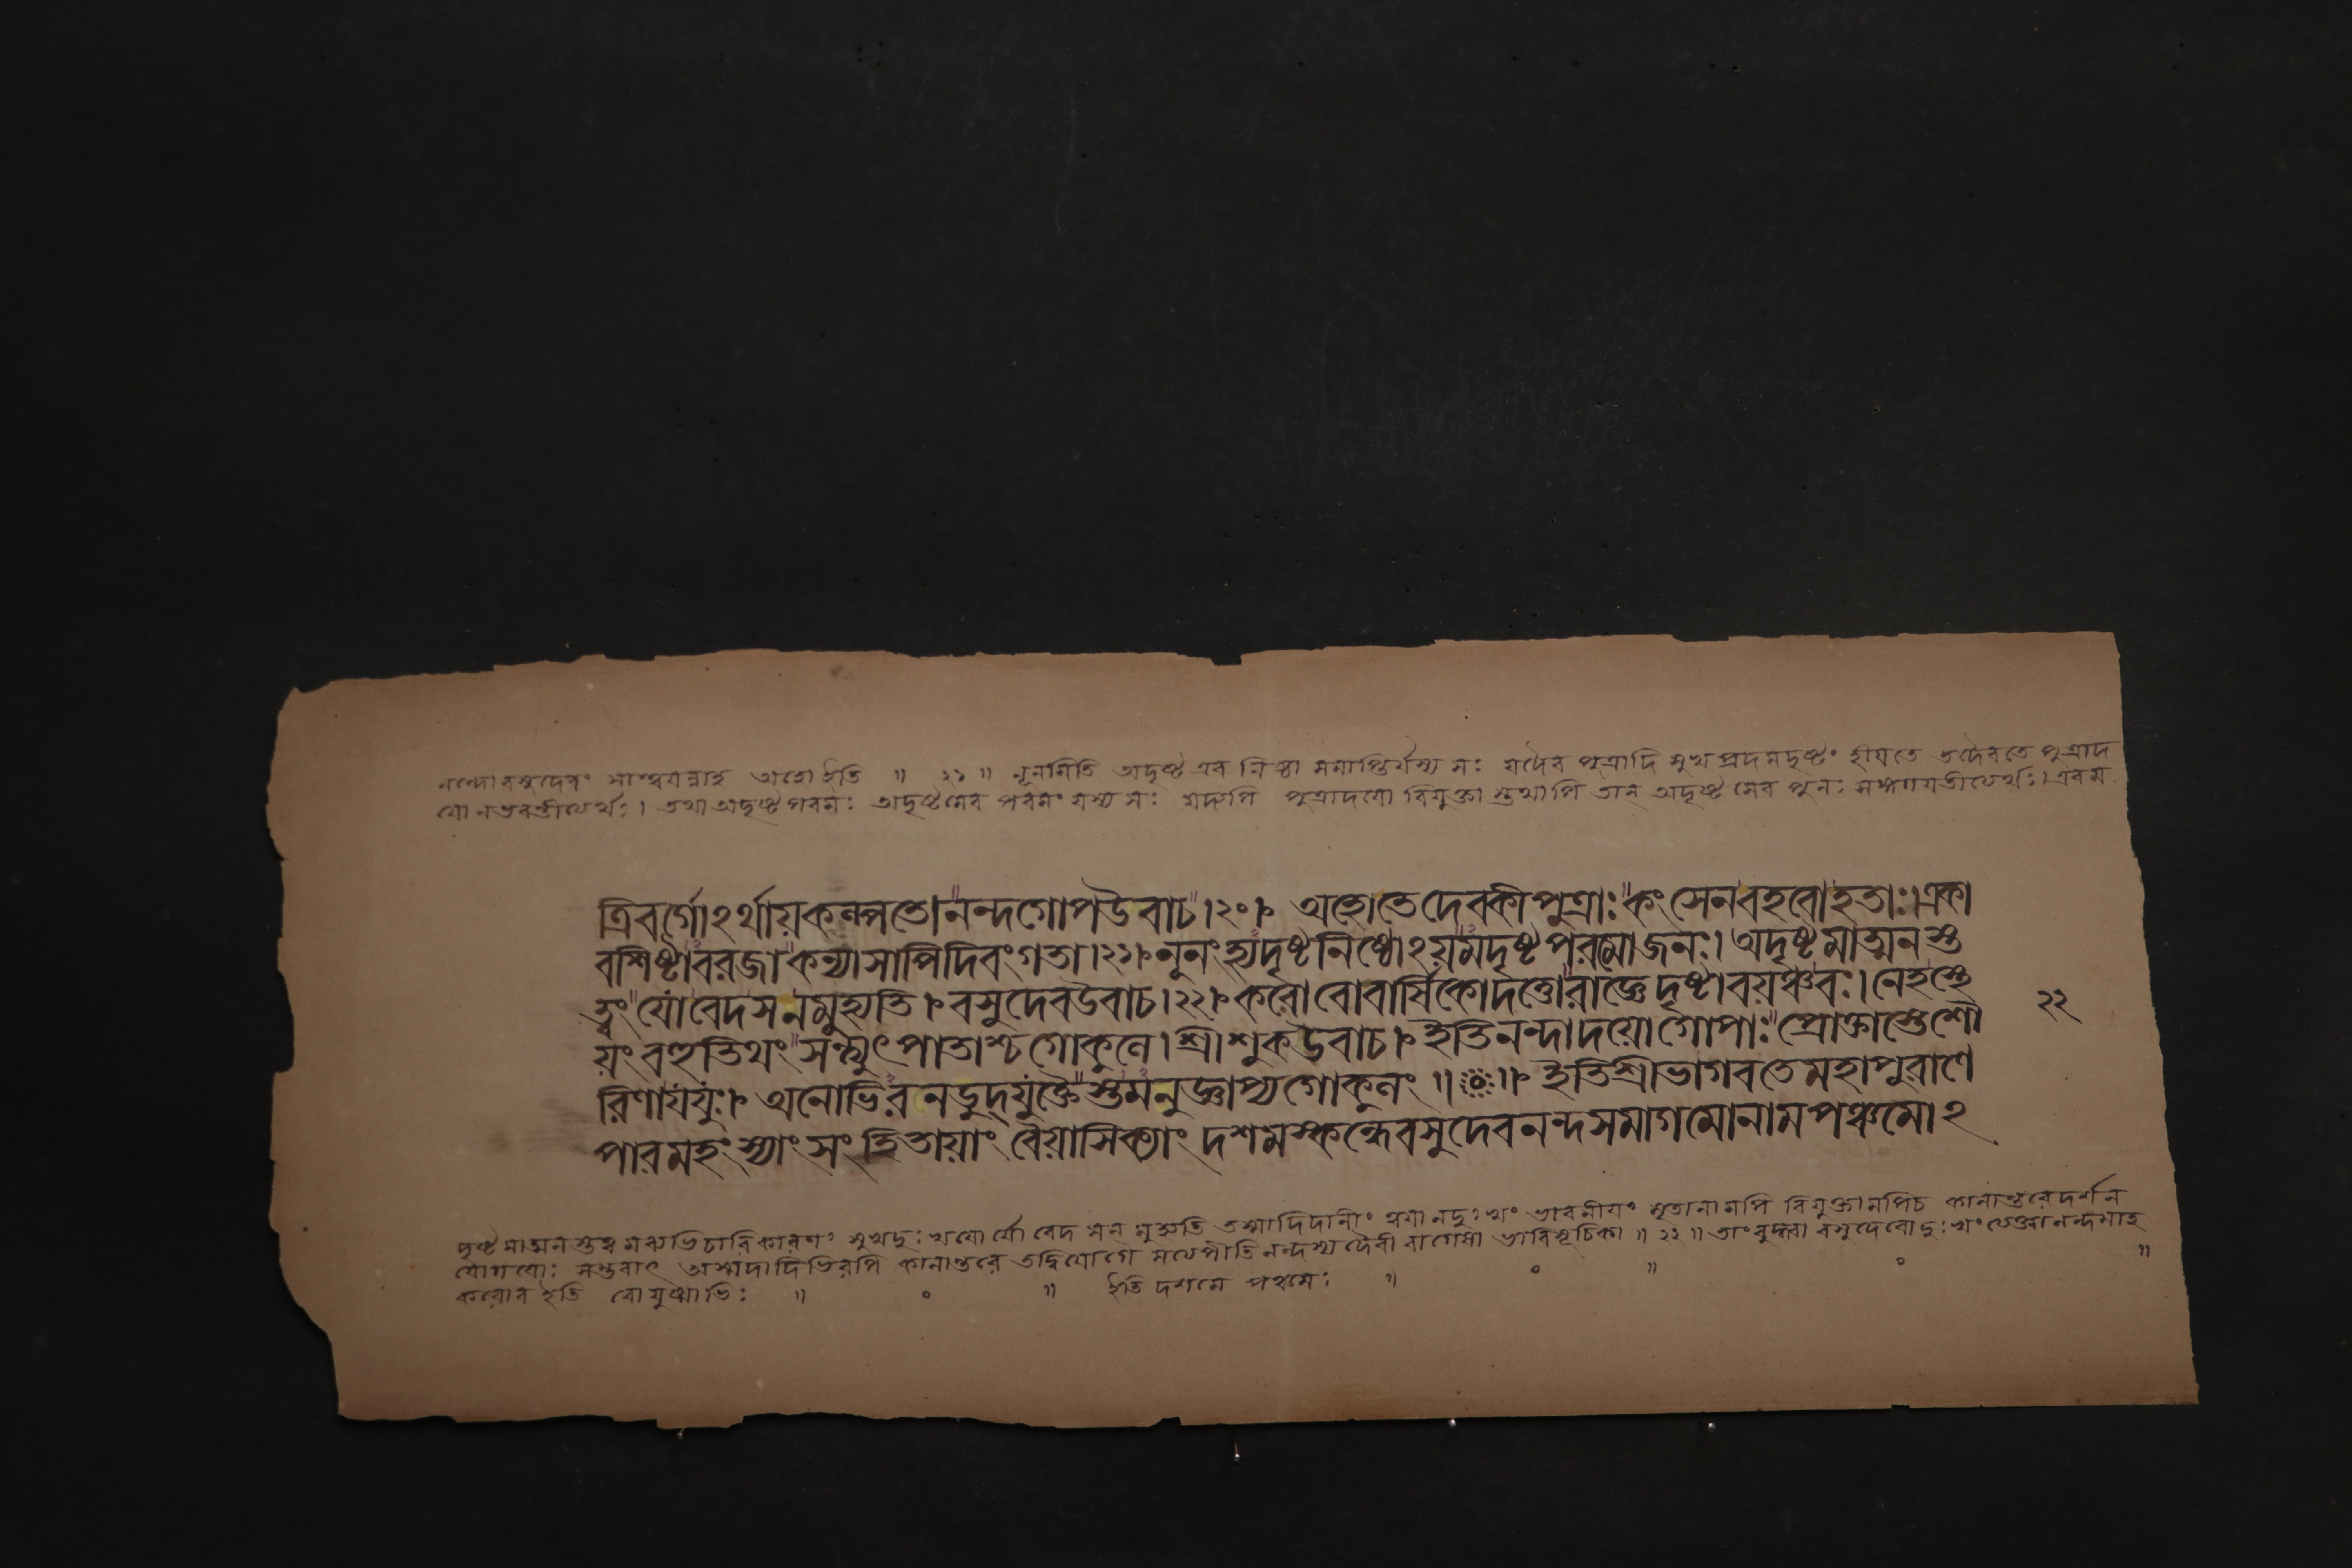 নন্দো বসুদেবং সান্ত্বয়ন্নাহ অহো ইতি ॥ ২১ ॥ নূনমিতি অদৃষ্ট এব নিষ্ঠা সমাপ্তির্যস্য সঃ যদৈব পুত্রাদি সুখপ্রদমদৃষ্টং হীয়তে তদৈবতে পুত্রাদ
যো নভবন্তীত্যর্থঃ। তথা অদৃষ্টপরমঃ অদৃষ্টমেব পরমং যস্য সঃ যদ্যপি পুত্রাদয়ো বিযুক্তা স্তথাপি তান্ অদৃষ্টমেব পুনঃ সঙ্গময়তীত্যর্থঃ। এবম
ত্রিবর্গোঽর্থায়কল্পতে। নন্দগোপউবাচ।২০। অহোতেদেবকীপুত্রাঃ কংসেনবহবোহতাঃ। একা
বশিষ্টাবরজা কন্যাসাপিদিবংগতা।২১। নূনংহ্যদৃষ্টনিষ্ঠোঽয়মদৃষ্টপরমোজনঃ। অদৃষ্টমাত্মনস্ত
ত্ত্বং যোবেদসনমুহ্যতি। বসুদেবউবাচ।২২। করোবোবার্ষিকোদত্তোরাজ্ঞেদৃষ্টাবয়ঞ্চবঃ। নেহস্থে
য়ং বহুতিথং সন্ত্যুৎপাতাশ্চগোকুলে। শ্রীশুকউবাচ। ইতিনন্দাদয়োগোপাঃ প্রোক্তাস্তেশৌ
রিণাযযুঃ। অনোভিরনডুদ্যুক্তৈস্তমনুজ্ঞাপ্যগোকুলং ॥০॥ ইতিশ্রীভাগবতেমহাপুরাণে
পারমহংস্যাং সংহিতায়াং বৈয়াসিক্যাং দশমস্কন্ধেবসুদেবনন্দসমাগমোনামপঞ্চমোঽ
২২
দৃষ্টমাত্মনস্তত্ত্বমব্যভিচারিকারণং সুখদুঃখয়োর্যো বেদ সন মুহ্যতি তস্মাদিদানীং ত্বয়ানদুঃখং ভাবনীয়ং মৃতানামপি বিযুক্তানামপিচ কালান্তরেদর্শন
যোগয়োঃ সম্ভবাৎ অস্মদাদিভিরপি কালান্তরে তদ্বিয়োগে সত্যপীতি নন্দস্য দৈবী বাগেষা ভাবিসূচিকা ॥ ২২ ॥ তাংবুদ্ধ্বা বসুদেবোদুঃখং ত্যক্ত্বানন্দমাহ
করোব ইতি বো যুষ্মাভিঃ ॥ ০ ॥ ইতি দশমে পঞ্চমঃ ॥ ০ ॥ ০ ॥